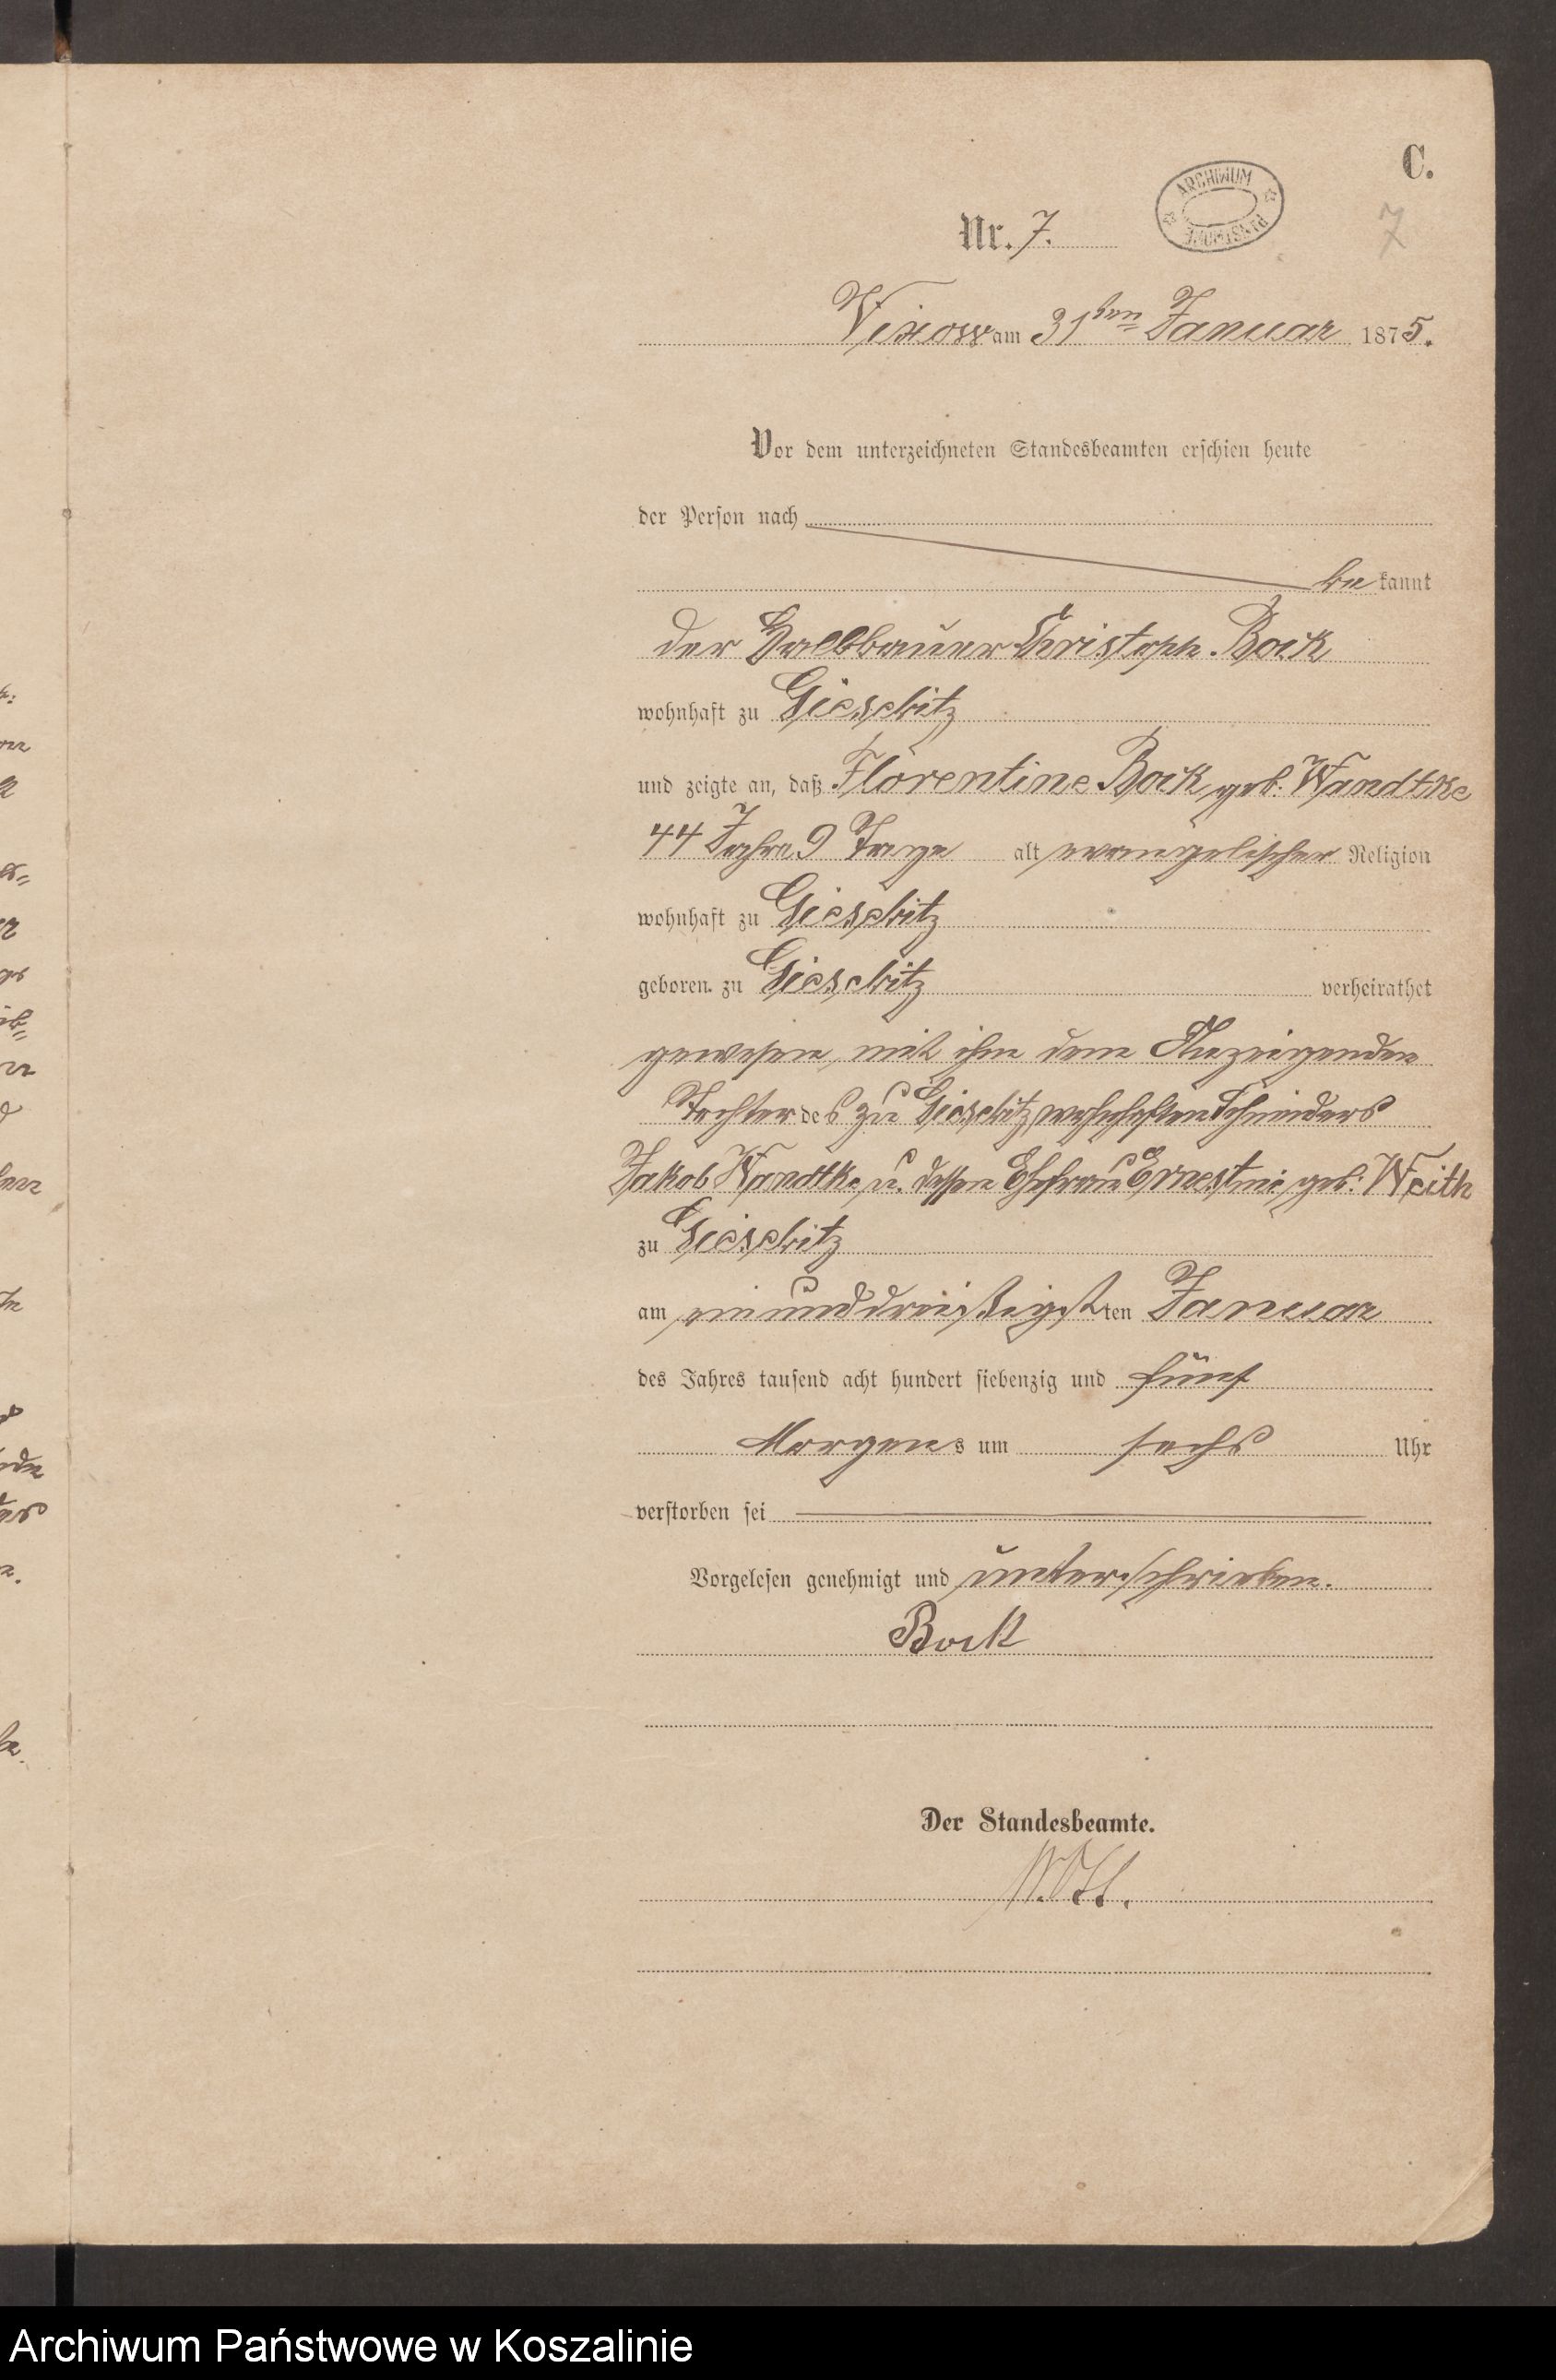 C.
ARCHIWUM PAŃSTWOWE
Nr. 7.
7
Vixow am 31ten Januar 1875.
Vor dem unterzeichneten Standesbeamten erschien heute
der Person nach
be kannt
der Halbbauer Christoph Bock
wohnhaft zu Giesebitz
und zeigte an, daß Florentine Bock geb. Wandtke
44 Jahre 9 Tage alt evangelischer Religion
wohnhaft zu Giesebitz
geboren zu Giesebitz verheirathet
gewesen mit ihm dem Anzeigenden
Tochter des zu Giesebitz wohnhaften Schneiders
Jakob Wandtke u. dessen Ehefrau Ernestine geb. Weith
zu Giesebitz
am einunddreißigst ten Januar
des Jahres tausend acht hundert siebenzig und fünf
Morgens um sechs Uhr
verstorben sei
Vorgelesen genehmigt und unterschrieben.
Bock
Der Standesbeamte.
Archiwum Państwowe w Koszalinie